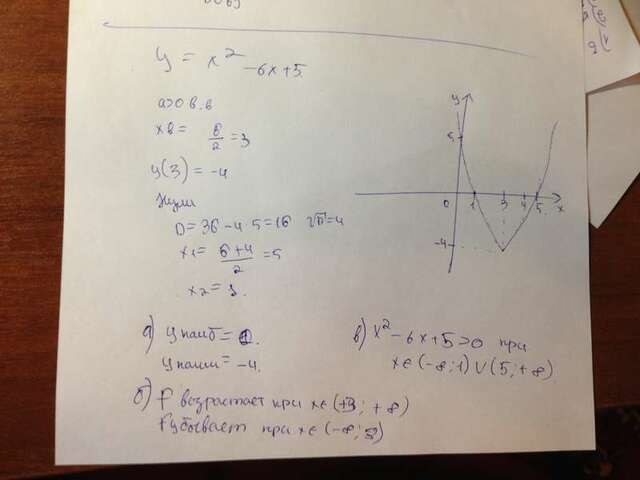 y = x² -6x+5
a>0 в.в
xв = 6/2 =3
y(3) = -4
Нули
D=36-4·5=16 √D=4
x1= 6+4/2 =5
x2= 1.
y
5
0 1 3 4 5 x
-4
а) y наиб=
y наим= -4.
в) x²-6x+5>0 при
x∈(-∞;1)∪(5;+∞)
б) f возрастает при x∈(+3; +∞)
f убывает при x∈(-∞; 3)